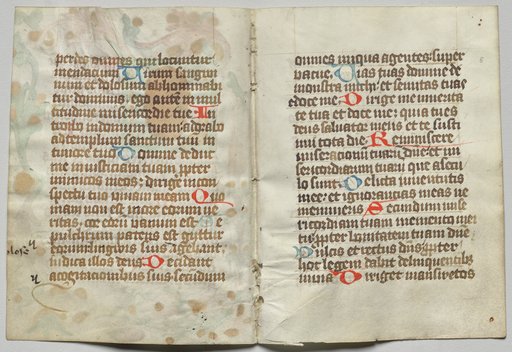 perdes omnes qui locuntur
mendacium Virum sangui
num et dolosum abhominabi
tur dominus, ego autē in mul
titudine misericordie tue In
troibo in domum tuam adorabo
ad templum sanctum tuū in
timore tuo Domine deduc
me in iusticiam tuam ꝓpter
inimicos meos: dirige in con
spectu tuo viam meam Quo
niam non est in ore eorum ve
ritas, cor eorū vanum est Se
pulchrum patens est guttur
eorum linguis suis agebant,
iudica illos deus Decidant
a cogitacionibus suis secūdum
omnes iniqua agentes super
vacue. Vias tuas domine de
monstra michi: et semitas tuas
edoce me Dirige me in verita
te tua et doce me: quia tu es
deus salvator meus et te susti
nui tota die Reminiscere
miseracionū tuarū dñe: et mi
sericordiarum tuarū que a secu
lo sunt Delicta iuventutis
mee: et ignorancias meas ne
memineris Secundum mise
ricordiam tuam memento mei
tu: ꝓpter bonitatem tuam dñe
Dulcis et rectus dñs: ꝓpter
hoc legem dabit delinquentibꝰ
in via Diriget mansuetos